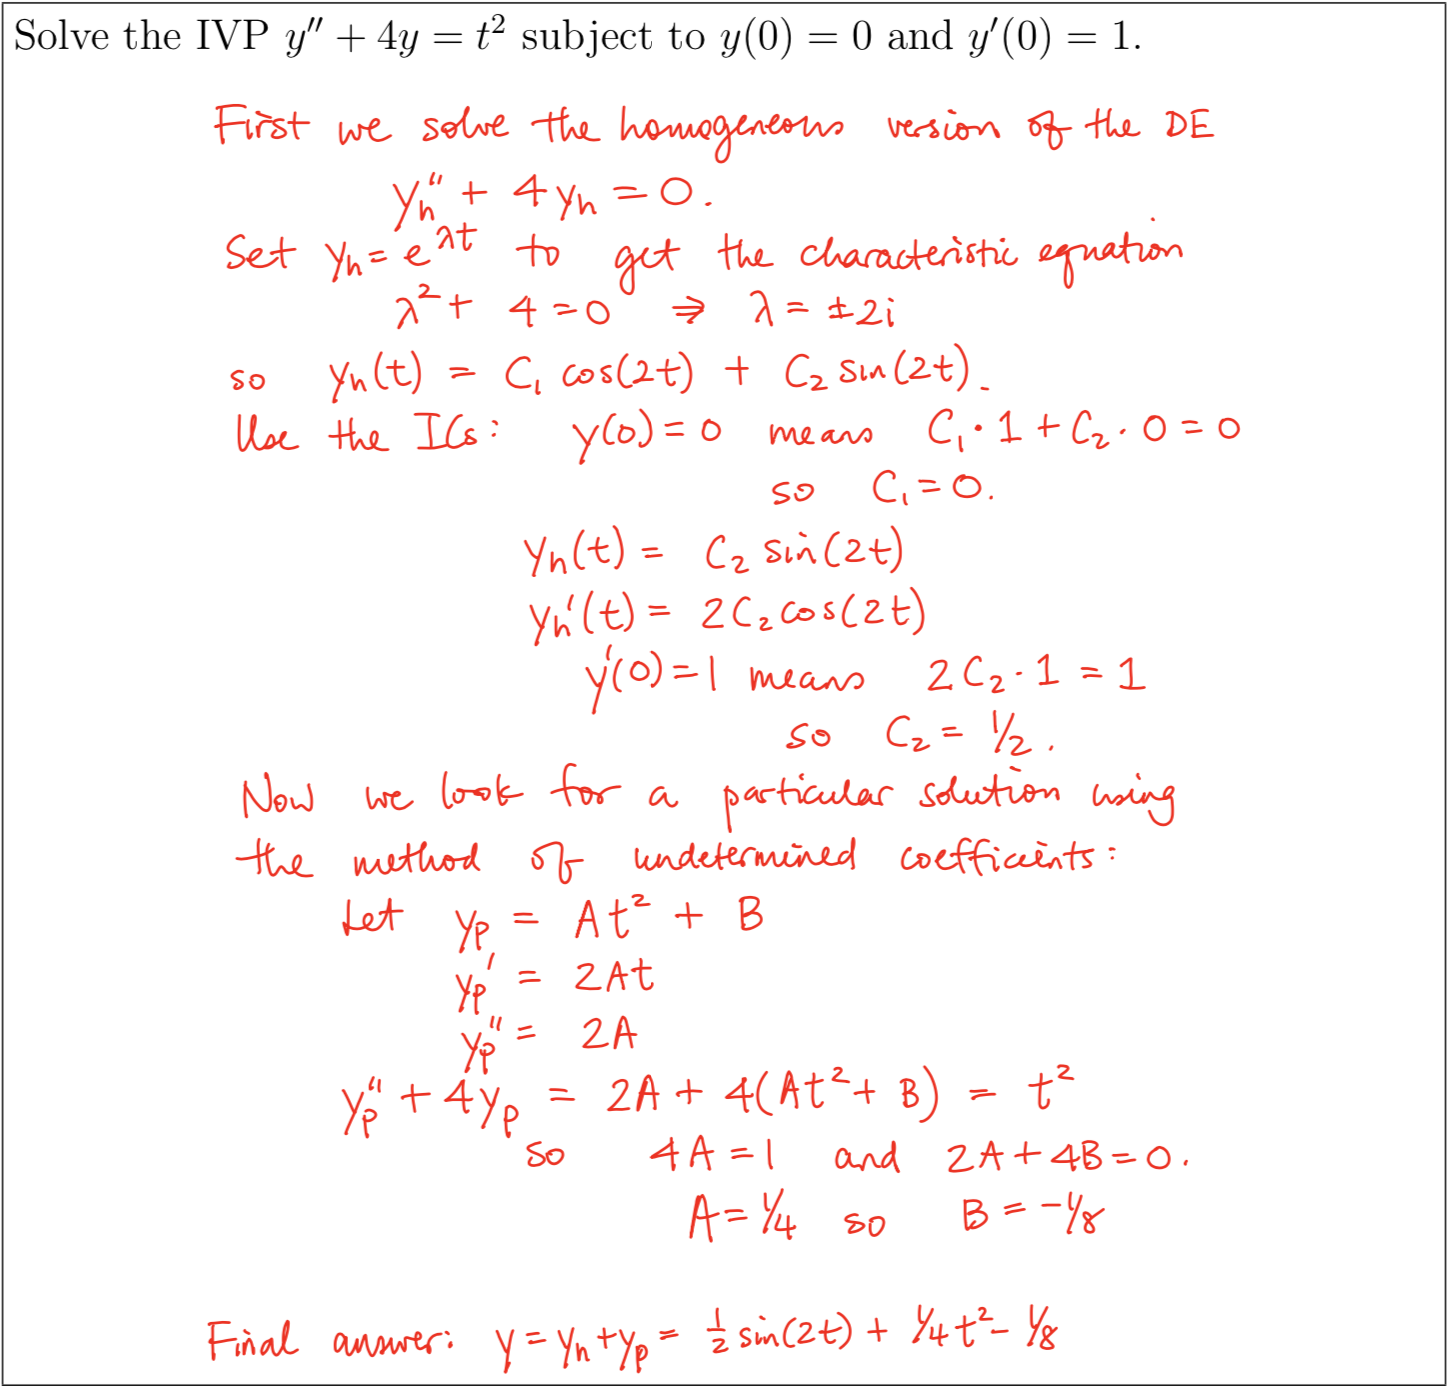 Solve the IVP y″ + 4y = t² subject to y(0) = 0 and y′(0) = 1.
First we solve the homogeneous version of the DE
yₕ″ + 4yₕ = 0.
Set yₕ = e^{λt} to get the characteristic equation
λ² + 4 = 0 ⇒ λ = ±2i
so yₕ(t) = C₁ cos(2t) + C₂ sin(2t).
Use the ICs: y(0) = 0 means C₁·1 + C₂·0 = 0
so C₁ = 0.
yₕ(t) = C₂ sin(2t)
yₕ′(t) = 2C₂ cos(2t)
y′(0) = 1 means 2C₂·1 = 1
so C₂ = 1/2.
Now we look for a particular solution using
the method of undetermined coefficients:
Let yₚ = At² + B
yₚ′ = 2At
yₚ″ = 2A
yₚ″ + 4yₚ = 2A + 4(At² + B) = t²
so 4A = 1 and 2A + 4B = 0.
A = 1/4 so B = -1/8
Final answer: y = yₕ + yₚ = 1/2 sin(2t) + 1/4 t² - 1/8